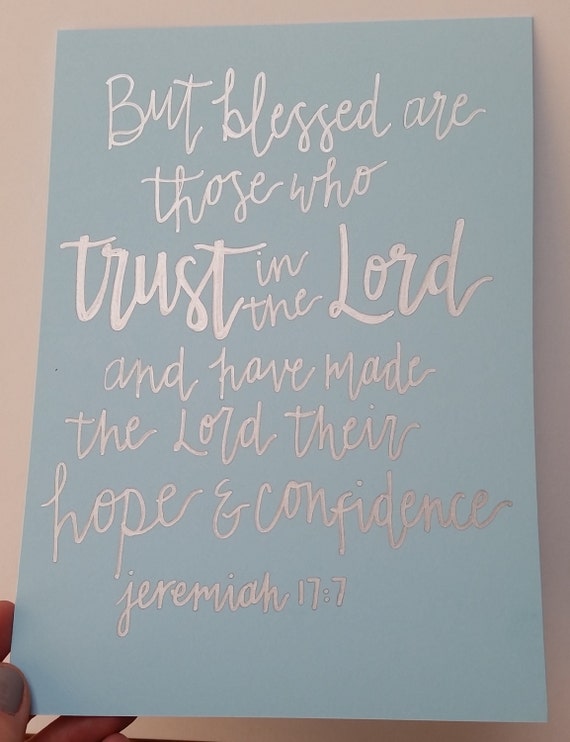 But blessed are
those who
trust in the Lord
and have made
the Lord their
hope & confidence
jeremiah 17:7